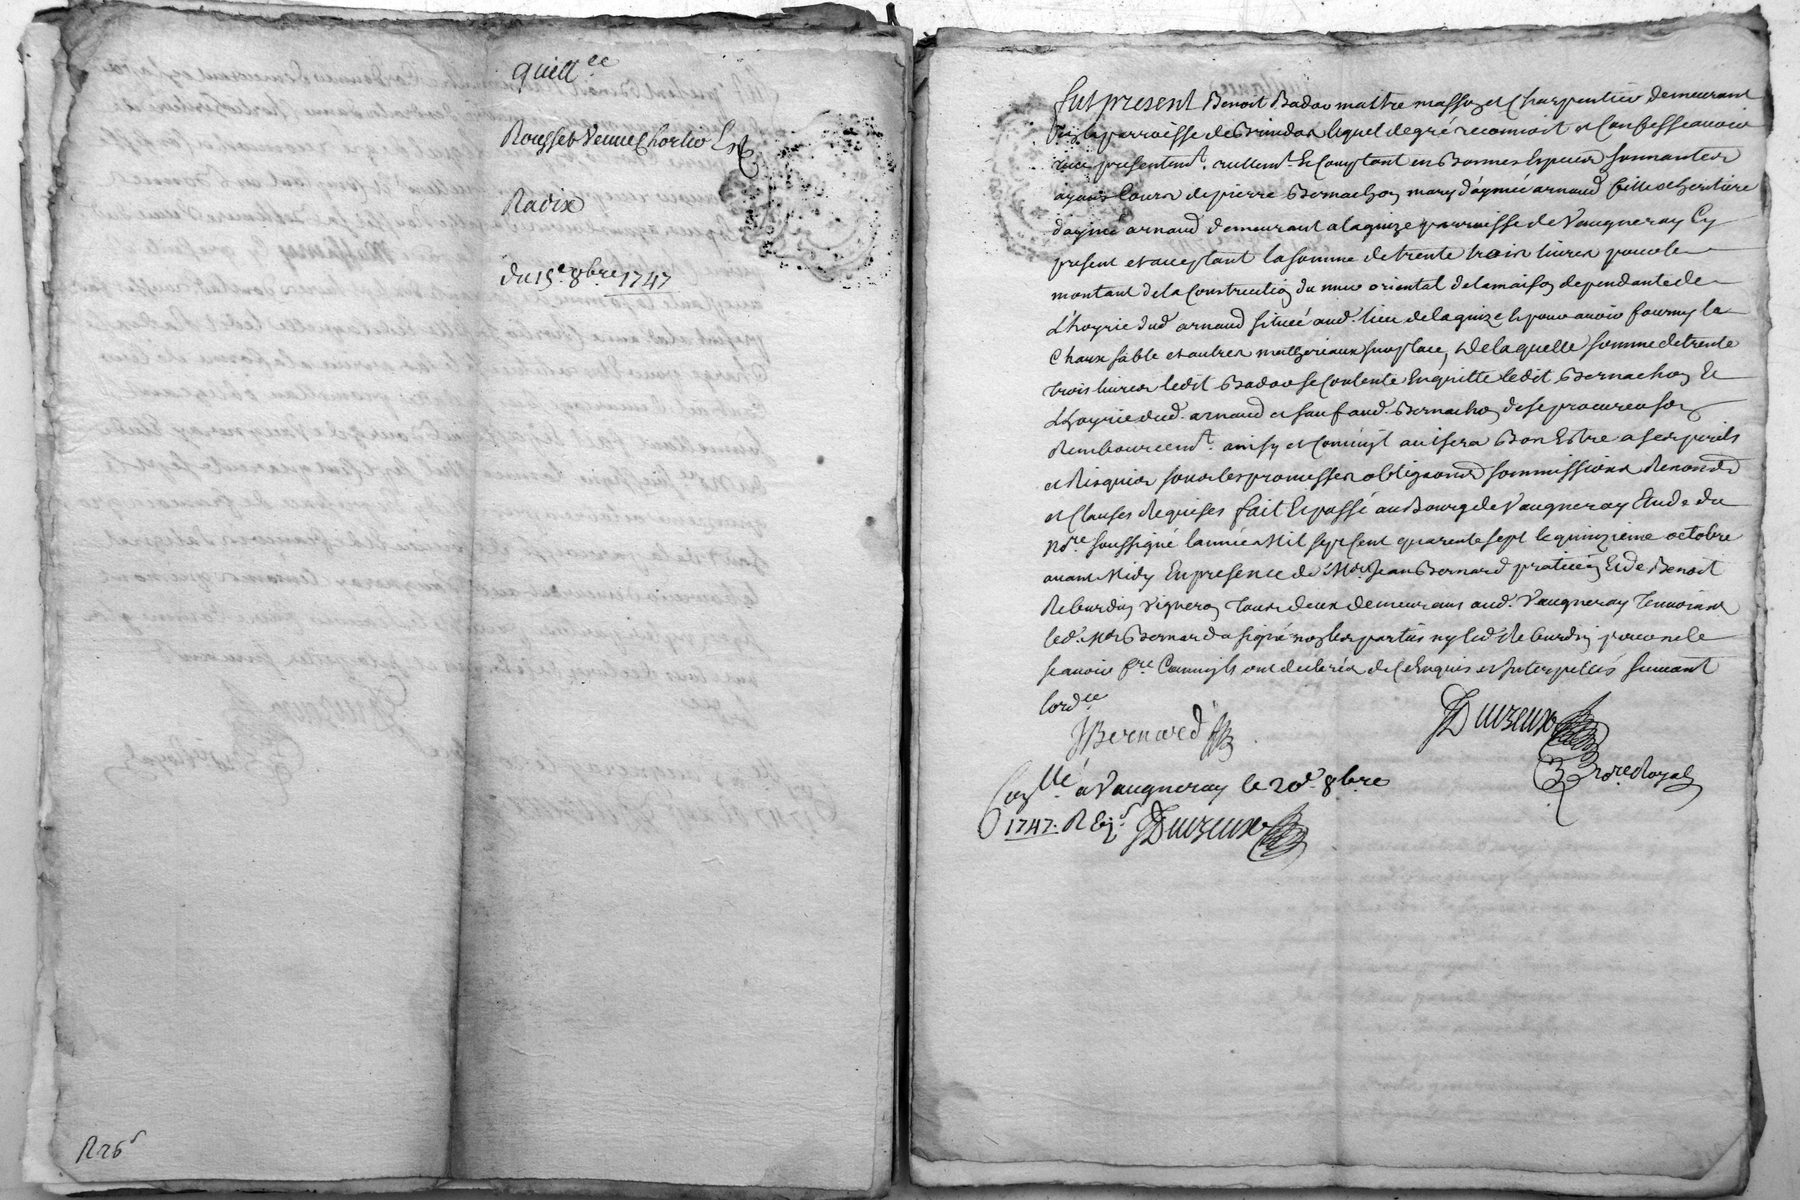 quitt.ce
Rousset Veuve Chorlio Et
Radix
du 15.e 8bre 1747
R 26s
fut present Benoit Badov maitre masson et Charpentier demeurant
parroisse de Brindas lequel de gré reconnoit et Confesse avoir
receu presentemt. reellemt. Et Comptant en Bonnes Especes sonnantes
ayans Cours de pierre Bernachon mary d'aymée arnaud fille et heritiere
d'aymé arnaud demeurant a laguize parroisse de Vaugneray Cy
present et acceptant la somme de trente trois livres pour le
montant de la Construction du mur oriental de la maison dependante de
L'hoyrie dud. arnaud située aud. lieu de laguize Et pour avoir fourny la
Chaux sable et autres mattereriaux sur place, de laquelle somme de trente
trois livres ledit Badov se Contente En quitte ledit Bernachon Et
L'hoyrie dud. arnaud et sauf aud. Bernachon de se procurer son
Remboursemt. ainsy et Comme il avisera Bon Estre a ses perils
et Risques sous les promesses obligaons. soummissions Renonõns
et Clauses Requises fait Et passé au Bourg de Vaugneray Etude du
Nore. soussigné l'année Mil sept Cent quarente sept le quinzieme octobre
avant Midy En presence de Me. Jean Bernard praticien Et de Benoit
Reburdin Vigneron tous deux demeurans aud. Vaugneray Temoins
led. Me Bernard a signé non les parties ny led. Reburdin pour ne le
scavoir fre. Comm'ils ont declarés de Ce Enquis et Interpellés suivant
lordce
JBernard
Duizeux
Nore Royal
Conllé a Vaugneray le 20e. 8bre
1747. R Duizeux